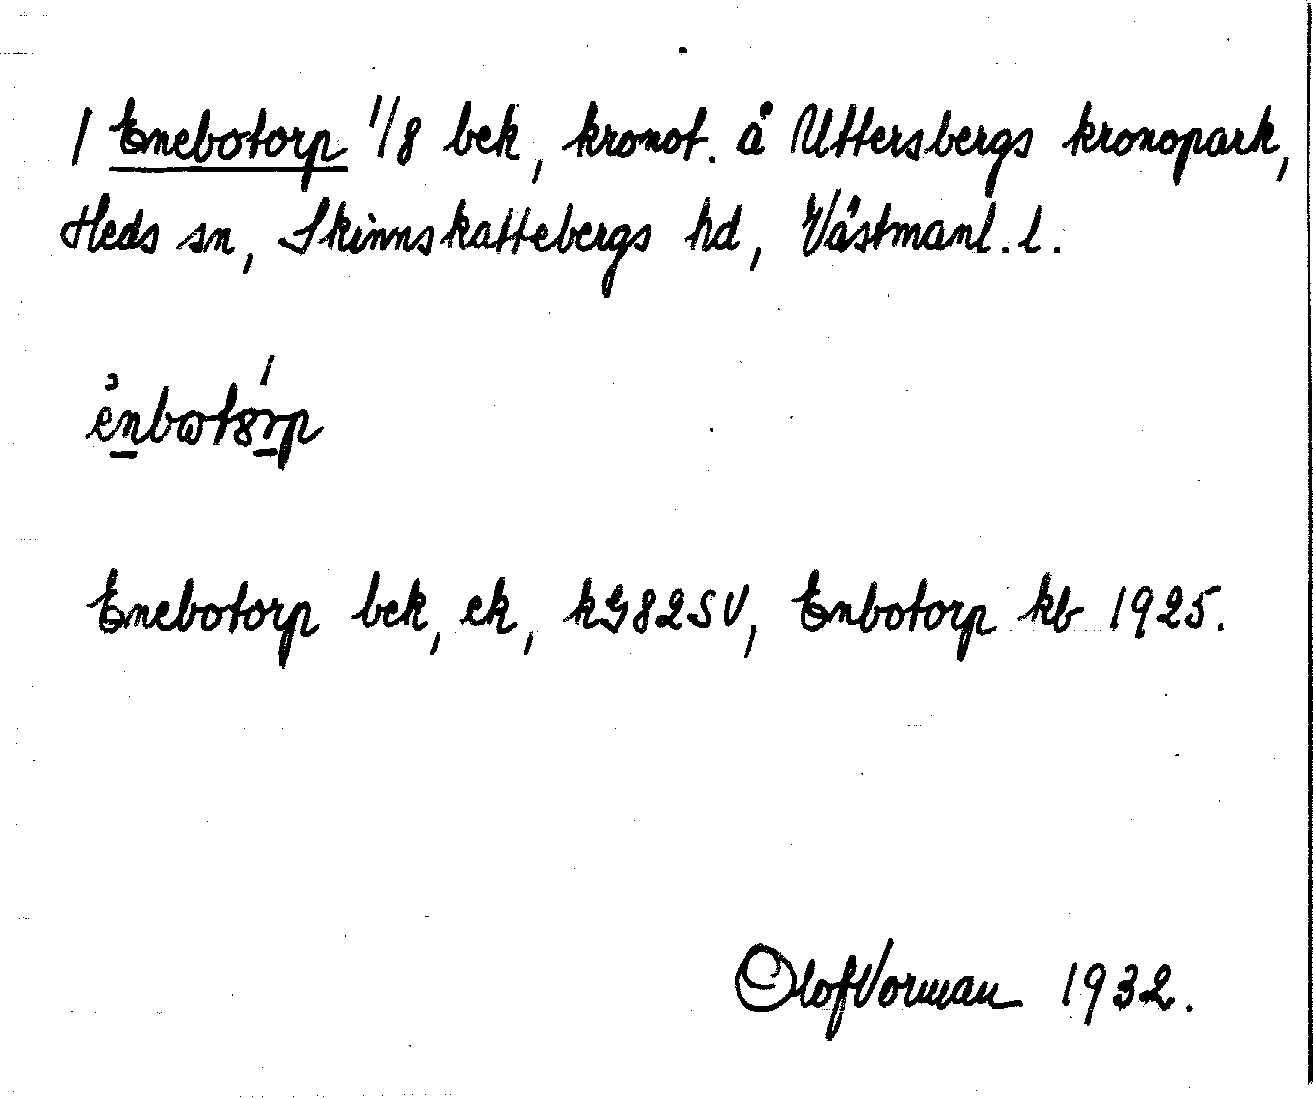 / Enebotorp 1/8 bek, kronot. å Uttersbergs kronopark,
Heds sn, Skinnskattebergs hd, Västmanl. l.
Enebotorp bek, ek, kG82SV, Enbotorp kb 1925.
Olof Vorman 1932.